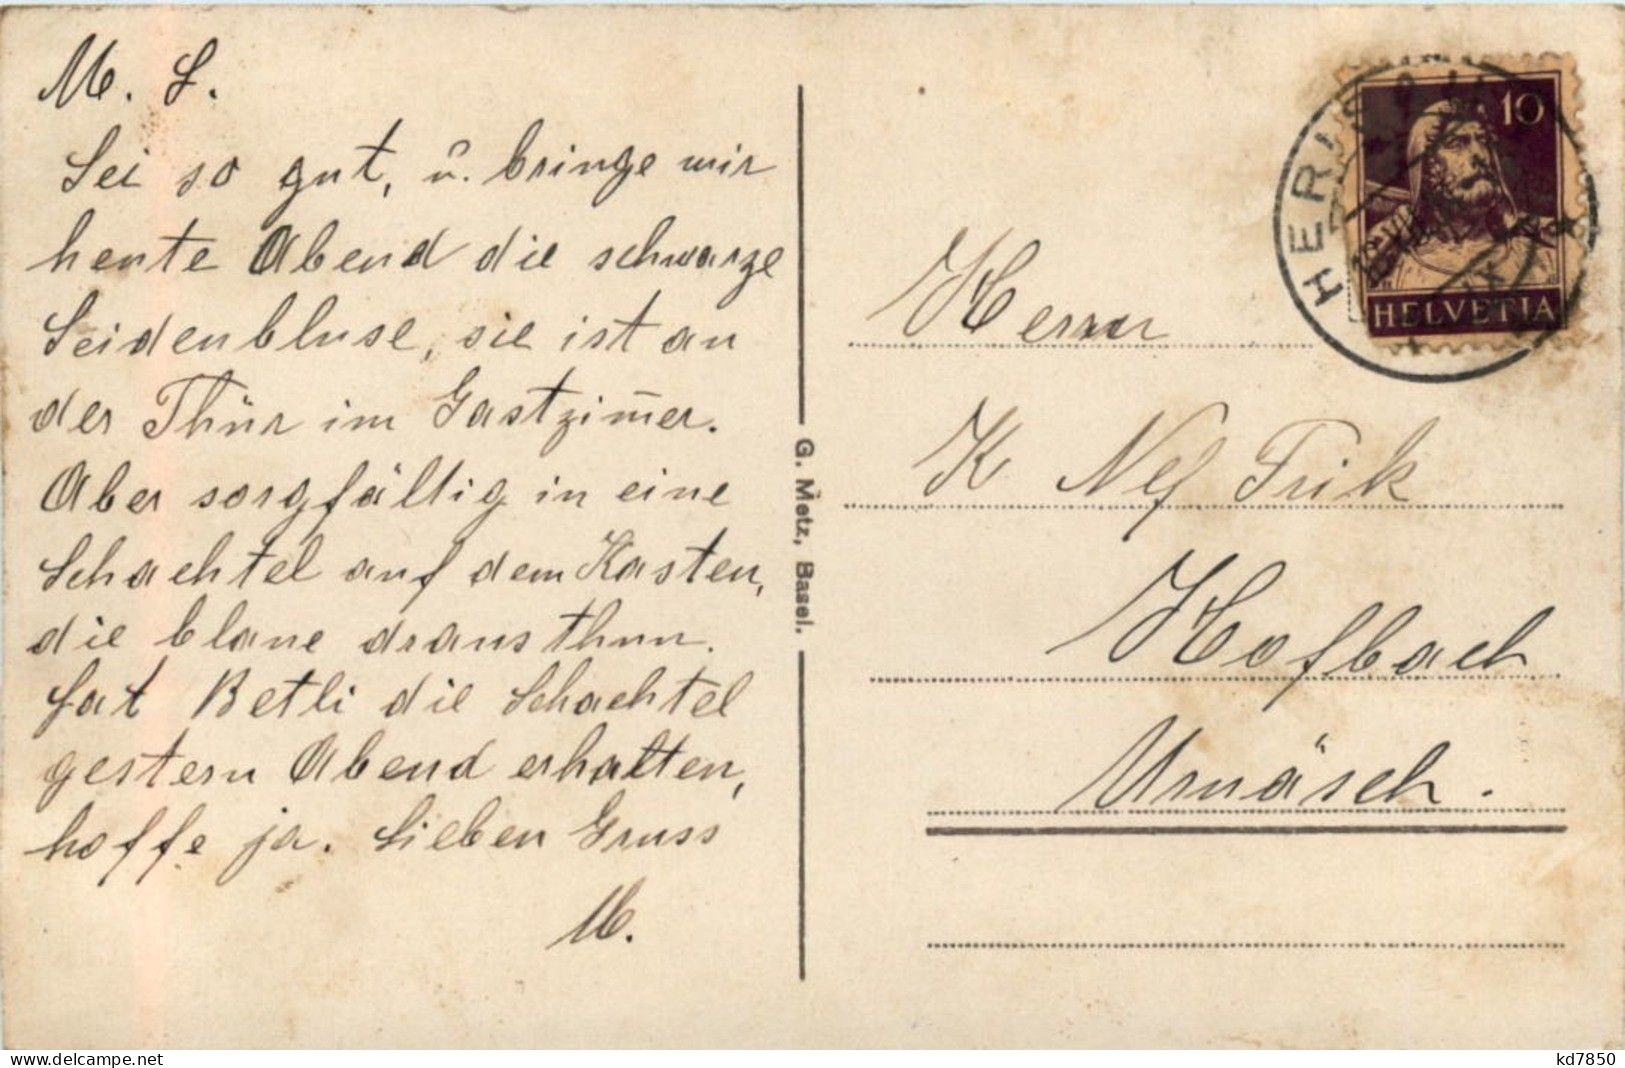 M. L.
Sei so gut, u. bringe mir
heute Abend die schwarze
Seidenbluse, sie ist an
der Thür im Gastzimer.
Aber sorgfältig in eine
Schachtel auf dem Kasten,
die blaue draus thun.
Hat Betli die Schachtel
gestern Abend erhalten,
hoffe ja. Lieben Gruss
M.
G. Metz, Basel.
10
HELVETIA
HERIS
Herrn
K Nef Frik
Hofbach
Urnäsch.
kd7850